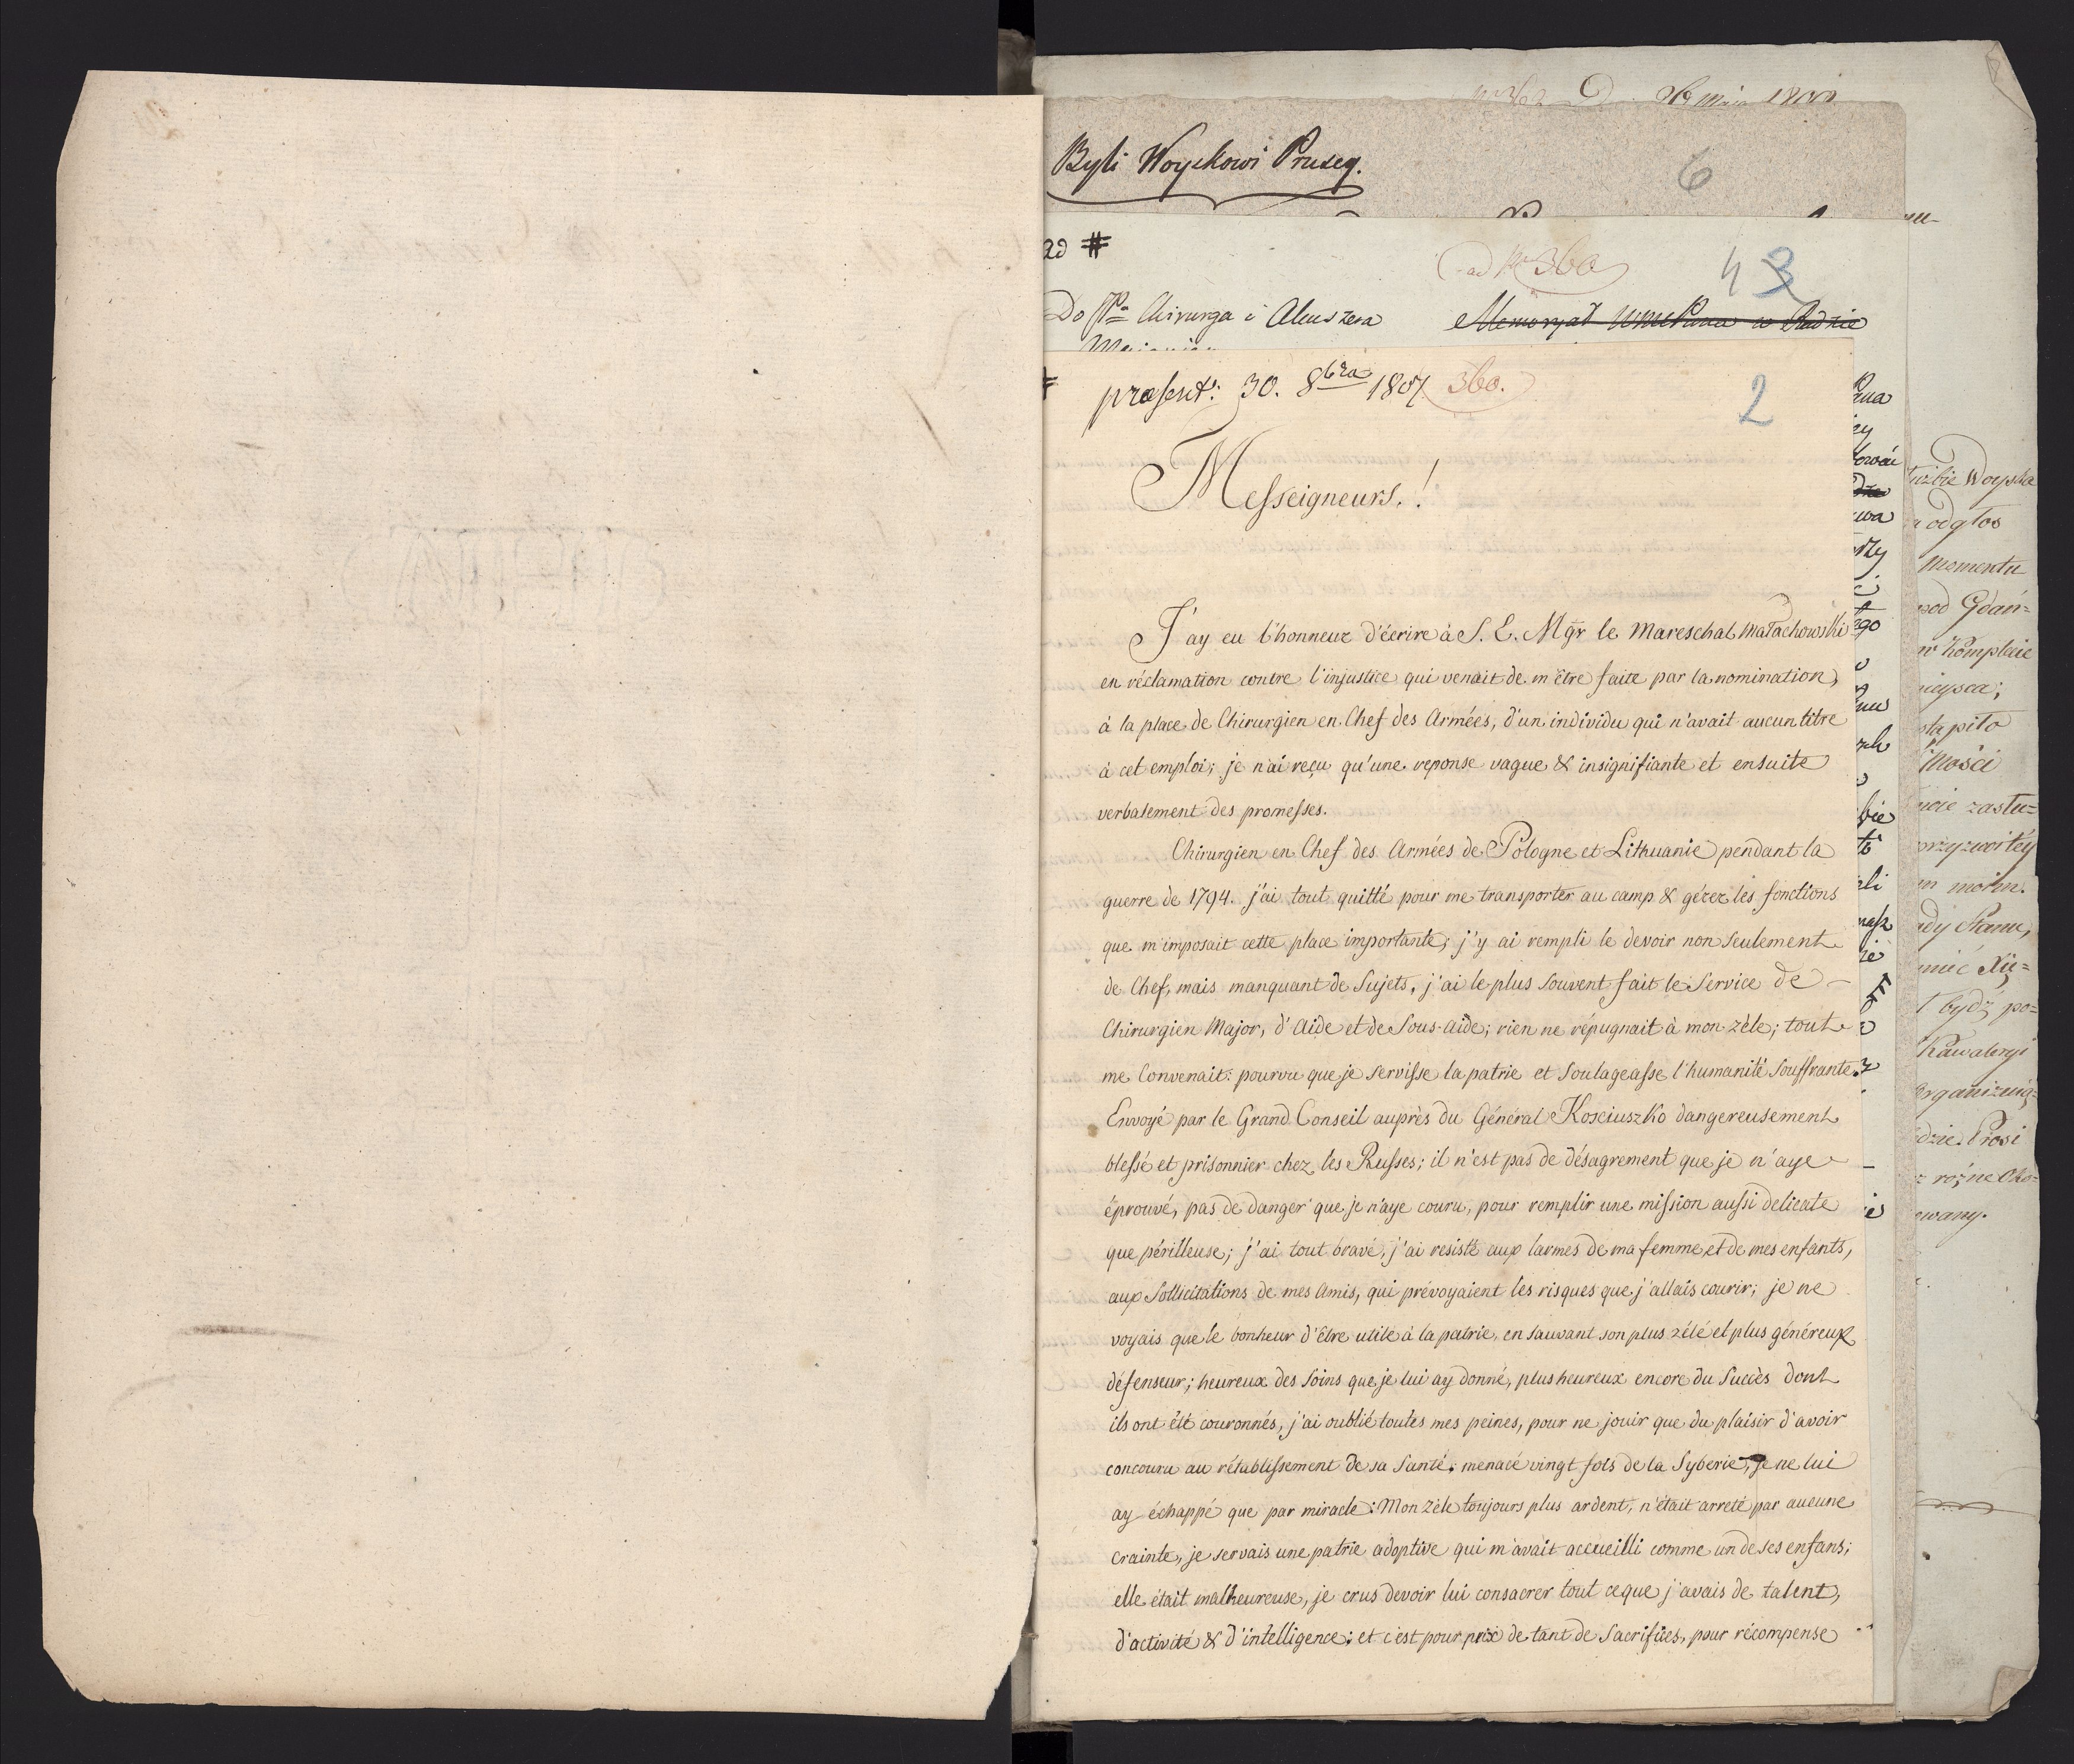 26 Maia 1808
Byli Woyskowi Pruscy.
6
ad #
ad Nr 360
43
Do JPa Chirurga i Akuszera
praesent: 30. 8bra 1807 360.
2
Messeigneurs.!
J'ay eu l'honneur d'écrire à S. E. Mgr le Mareschal Małachowski
en réclamation contre l'injustice qui venait de m'être faite par la nomination,
à la place de Chirurgien en Chef des Armées, d'un individu qui n'avait aucun titre
à cet emploi; je n'ai reçu qu'une reponse vague & insignifiante et ensuite
verbalement des promesses.
Chirurgien en Chef des Armées de Pologne et Lithuanie pendant la
guerre de 1794. j'ai tout quitté pour me transporter au camp & gérer les fonctions
que m'imposait cette place importante; j'y ai rempli le devoir non seulement
de Chef, mais manquant de Sujets, j'ai le plus souvent fait le Service de
Chirurgien Major, d'Aide et de Sous-aide; rien ne répugnait à mon zèle; tout
me Convenait: pourvu que je servisse la patrie et soulageasse l'humanité Souffrante.
Envoyé par le Grand Conseil auprès du Général Kosciuszko dangereusement
blessé et prisonnier chez les Russes; il n'est pas de désagrement que je n'aye
éprouvé, pas de danger que je n'aye couru, pour remplir une mission aussi delicate
que périlleuse; j'ai tout bravé, j'ai resisté aux larmes de ma femme et de mes enfants,
aux Sollicitations de mes Amis, qui prévoyaient les risques que j'allais courir; je ne
voyais que le bonheur d'être utile à la patrie, en sauvant son plus zélé et plus généreux
défenseur; heureux des Soins que je lui ay donné, plus heureux encore du Succès dont
ils ont été couronnés, j'ai oublié toutes mes peines, pour ne jouir que du plaisir d'avoir
concouru au rétablissement de sa Santé. menacé vingt fois de la Syberie, je ne lui
ay échappé que par miracle: Mon zèle toujours plus ardent, n'était arreté par aucune
crainte, je servais une patrie adoptive qui m'avait accueilli comme un de ses enfans;
elle était malheureuse, je crus devoir lui consacrer tout ce que j'avais de talent,
d'activité & d'intelligence; et c'est pour prix de tant de Sacrifices, pour récompense
Woyska
odgłos
momentu
pod Gdań=
Komplecie
mieysca;
Mości
zasłu=
przyzwitéy
moim.
Stanu,
Xię=
bydź po=
Kawaleryi
Prosi
rożne